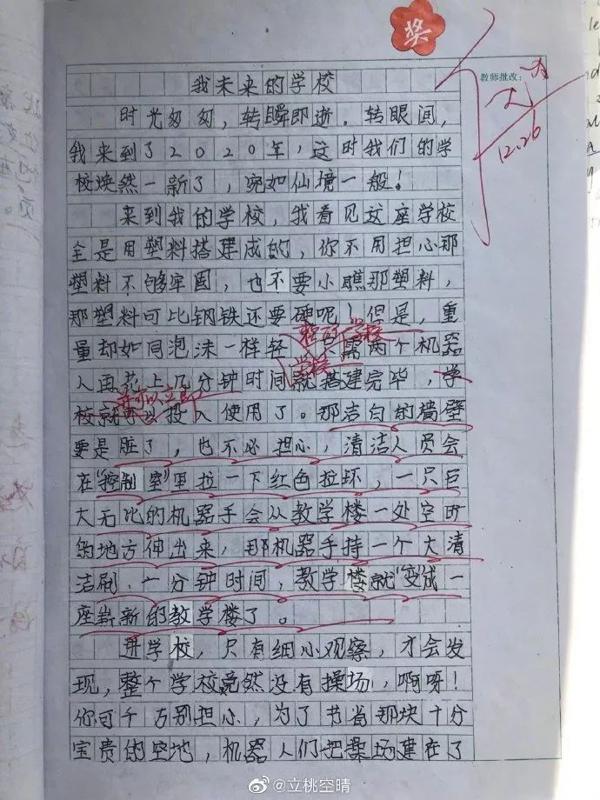 奖
教师批改：
12.26
我未来的学校
时光匆匆，转瞬即逝。转眼间，
我来到了2020年，这时我们的学
校焕然一新了，宛如仙境一般！
来到我的学校，我看见这座学校
全是用塑料搭建成的，你不用担心那
塑料不够牢固，也不要小瞧那塑料，
那塑料可比钢铁还要硬呢！但是，重
量却如同泡沫一样轻，只需两个机器
人再花上几分钟时间就搭建完毕，学
校就可以投入使用了。那洁白的墙壁
要是脏了，也不必担心，清洁人员会
在“控制室”里拉一下红色拉环，一只巨
大无比的机器手会从教学楼一处空旷
的地方伸出来，那机器手持一个大清
洁刷，一分钟时间，教学楼就“变”成一
座崭新的教学楼了。
进学校，只有细小观察，才会发
现，整个学校竟然没有操场，啊呀！
你可千万别担心，为了节省那块十分
宝贵的空地，机器人们把操场建在了
@立桃空晴